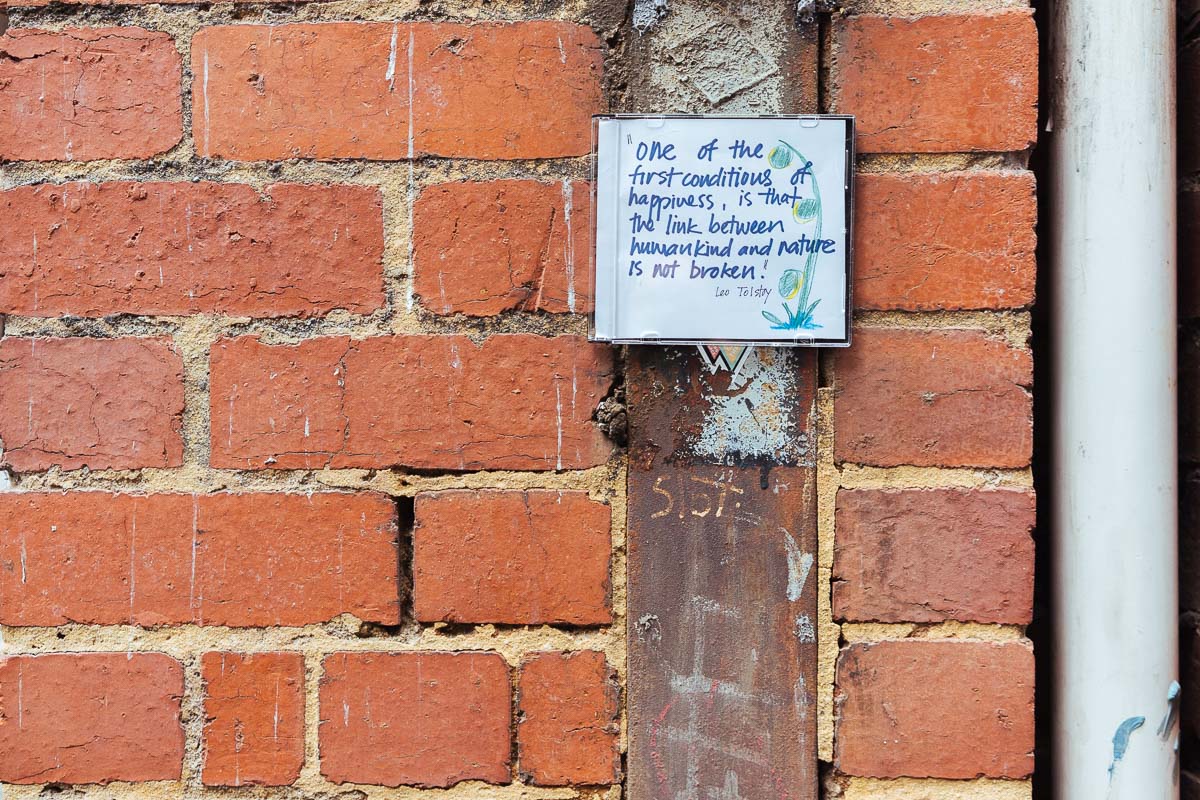 "one of the
first conditions of
happiness, is that
the link between
humankind and nature
is not broken."
Leo Tolstoy